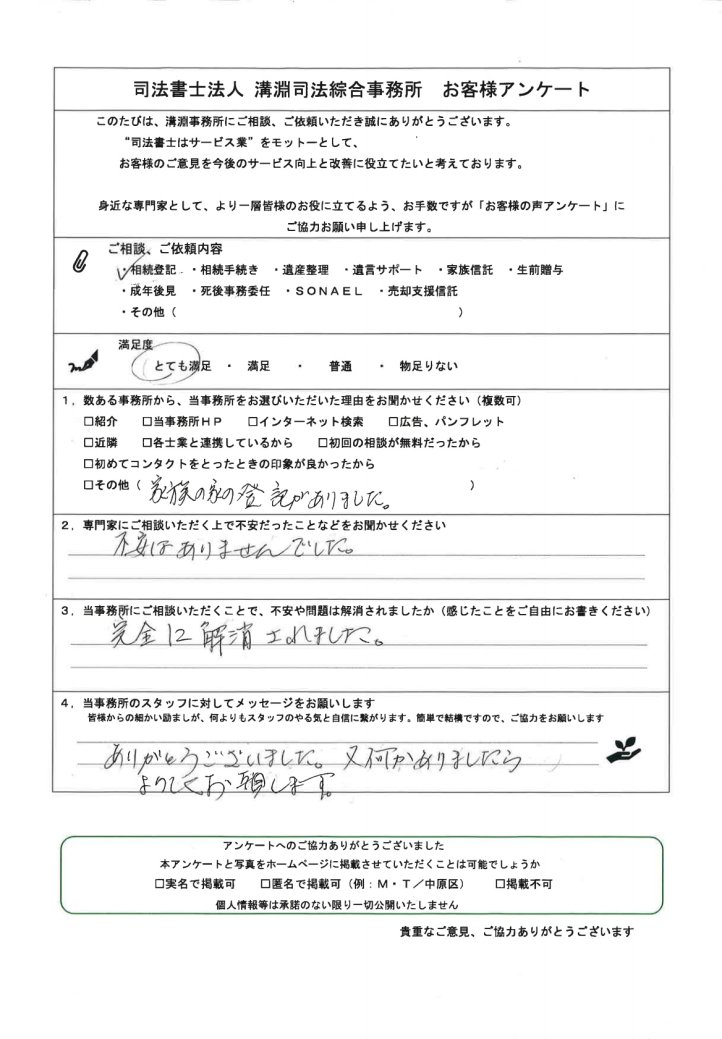 司法書士法人 溝淵司法綜合事務所 お客様アンケート
このたびは、溝淵事務所にご相談、ご依頼いただき誠にありがとうございます。
“司法書士はサービス業”をモットーとして、
お客様のご意見を今後のサービス向上と改善に役立てたいと考えております。
身近な専門家として、より一層皆様のお役に立てるよう、お手数ですが「お客様の声アンケート」に
ご協力お願い申し上げます。
ご相談、ご依頼内容
・相続登記 ・相続手続き ・遺産整理 ・遺言サポート ・家族信託 ・生前贈与
・成年後見 ・死後事務委任 ・SONAEL ・売却支援信託
・その他( )
満足度
とても満足 ・ 満足 ・ 普通 ・ 物足りない
1.数ある事務所から、当事務所をお選びいただいた理由をお聞かせください(複数可)
□紹介 □当事務所HP □インターネット検索 □広告、パンフレット
□近隣 □各士業と連携しているから □初回の相談が無料だったから
□初めてコンタクトをとったときの印象が良かったから
□その他( 家族の家の登記がありました。 )
2.専門家にご相談いただく上で不安だったことなどをお聞かせください
不安はありませんでした。
3.当事務所にご相談いただくことで、不安や問題は解消されましたか(感じたことをご自由にお書きください)
完全に解消されました。
4.当事務所のスタッフに対してメッセージをお願いします
皆様からの細かい励ましが、何よりもスタッフのやる気と自信に繋がります。簡単で結構ですので、ご協力をお願いします
ありがとうございました。又何かありましたら
よろしくお願します。
アンケートへのご協力ありがとうございました
本アンケートと写真をホームページに掲載させていただくことは可能でしょうか
□実名で掲載可 □匿名で掲載可(例:M・T/中原区) □掲載不可
個人情報等は承諾のない限り一切公開いたしません
貴重なご意見、ご協力ありがとうございます